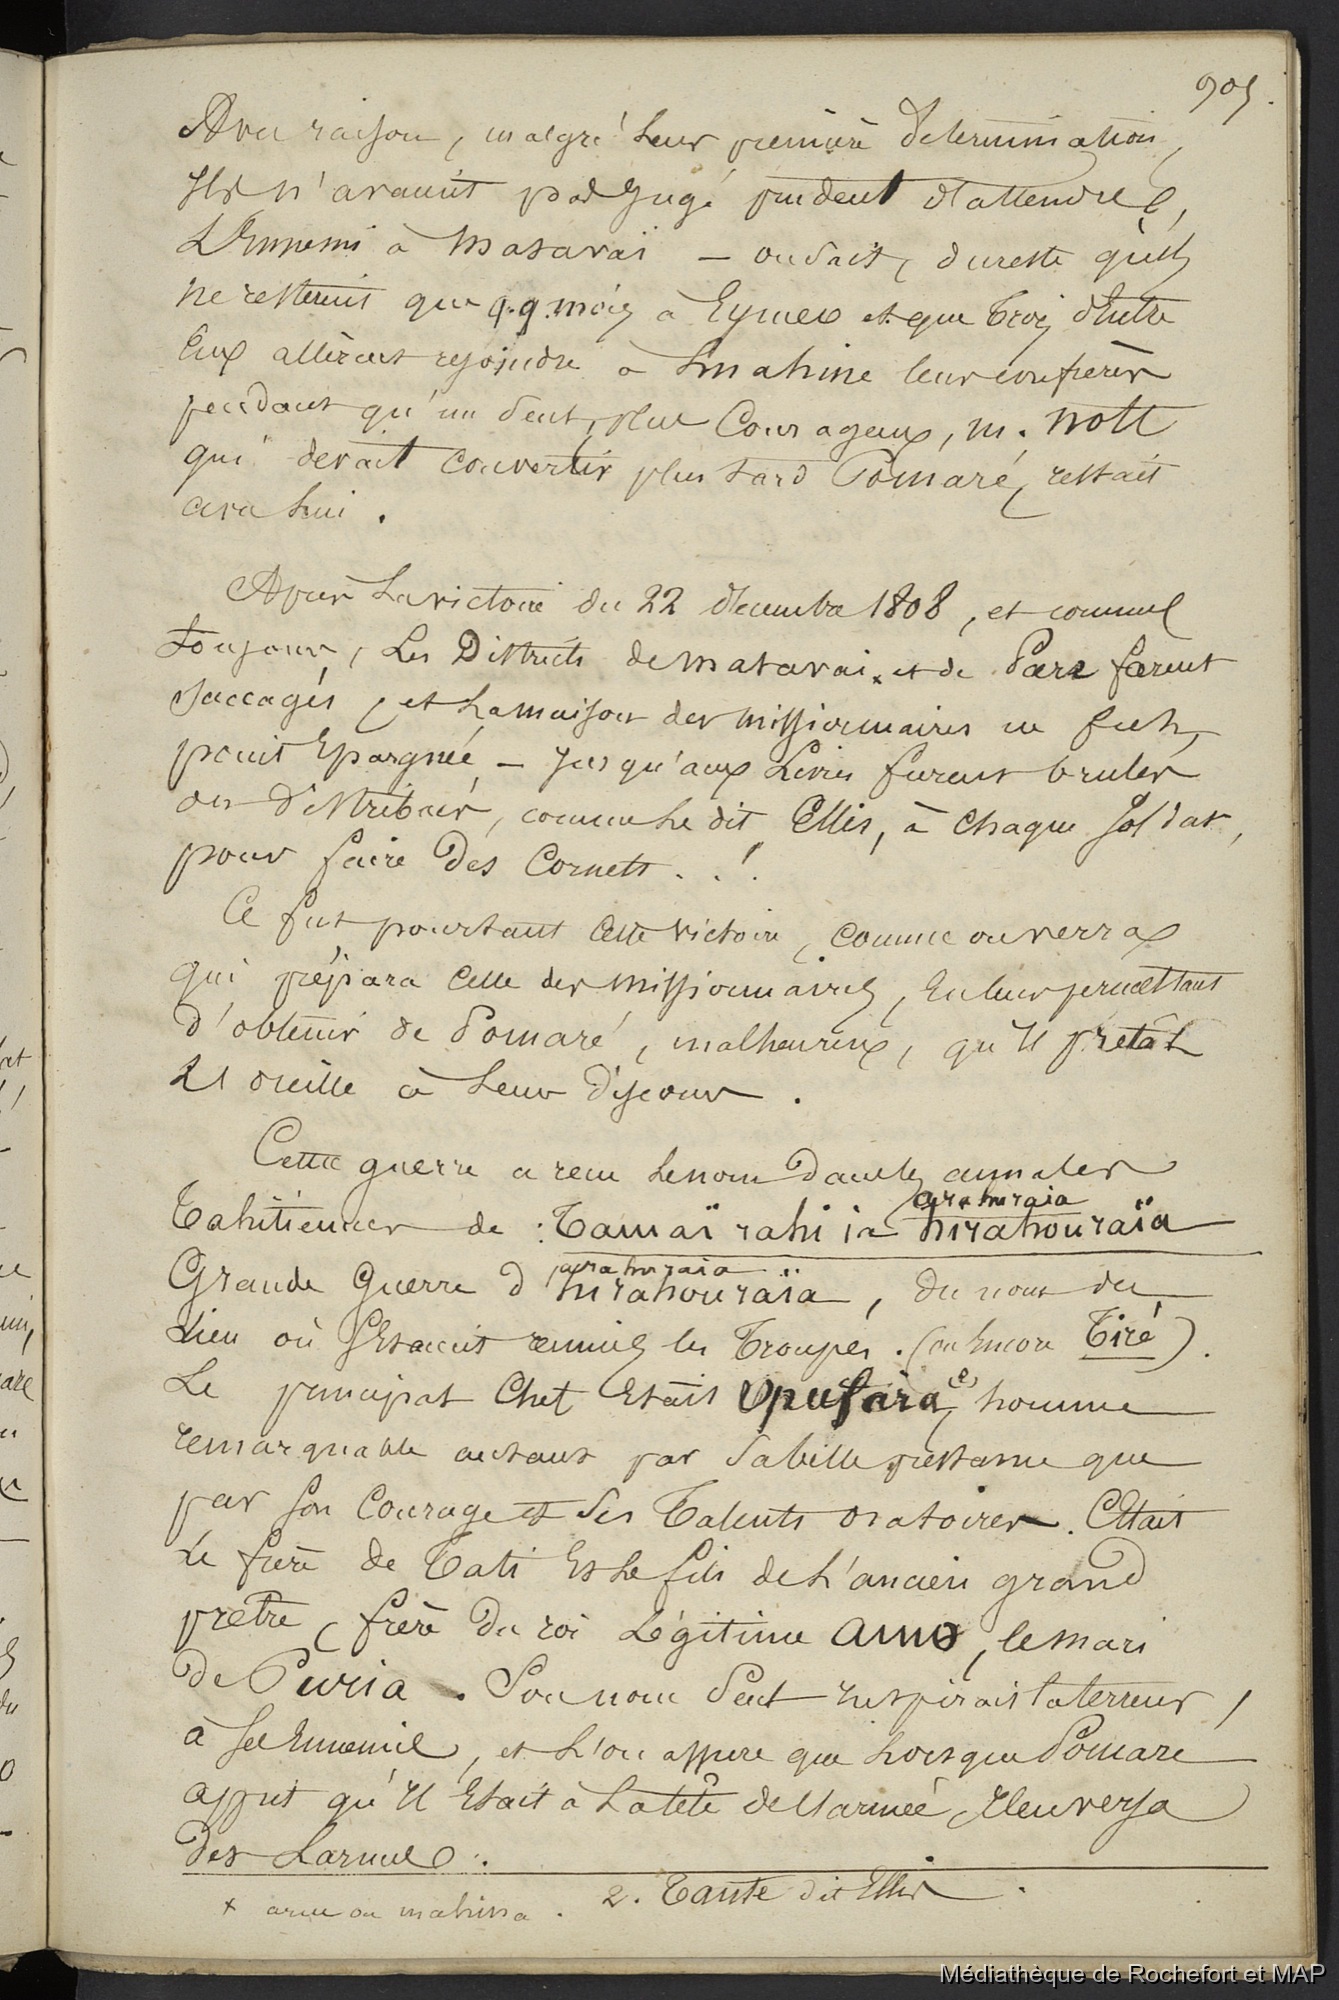 905.
Avec raison, malgré leur première determination,
Ils n'avaient pas Jugé prudent d'attendre
L'Ennemi à Matavaï — on sait, dureste qu'ils
ne restèrent que q.q. mois à Eymeo et que Trois d'Entre
Eux allèrent rejoindre à huahine leur confrères
pendant qu'un seul, plus Courageux, M. Nott
qui devait convertir plus tard Pomaré, restait
avec lui.
Après La victoire du 22 decembre 1808, et comme
toujours, Les Districts de matavai x et de Pare furent
saccagés, et La maison des missionnaires ne fut
point Epargnée — Jusqu'aux Livres furent brulés
ou distribués, comme le dit Ellis, à chaque soldat,
pour faire des cornets . . !
Ce fut pourtant cette victoire, comme on verra
qui prépara celle des missionnaires, En leur permettant
d'obtenir de Pomaré, malheureux, qu'Il pretât
L'oreille à Leur discours.
Cette guerre a reçu le nom dans les annales
arahuraia
Tahitiennes de : Tamaï rahi ia hirahouraïa
arahuraia
Grande Guerre d'hirahouraïa, du nom du
Lieu où s'Etaient reunies les Troupes. (ou Encore Tiré).
Le principal Chef Etait Opufara (2), homme
remarquable autant par sa belle prestance que
par son Courage et ses Talents oratoires. C'Etait
Le frère de Tati Et le fils de L'ancien grand
prêtre, frère du roi Légitime Amo, le mari
de Puria. Son nom seul inspirait la terreur,
à ses Ennemis, et L'on assure que Lorsque Pomare
apprit qu'Il Etait à La tête de L'armée, Il en versa
des Larmes.
x arue ou mahina.
2. Tante dit Ellis.
Médiathèque de Rochefort et MAP